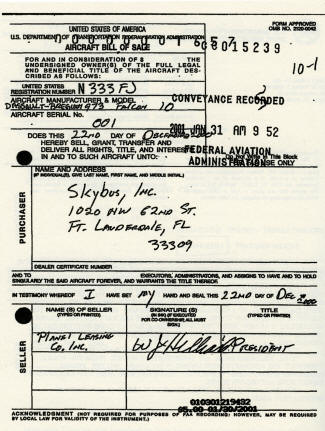 FORM APPROVED
OMB NO. 2120-0042
UNITED STATES OF AMERICA
U.S. DEPARTMENT OF TRANSPORTATION FEDERAL AVIATION ADMINISTRATION
AIRCRAFT BILL OF SALE
CC015239
FOR AND IN CONSIDERATION OF $ THE
UNDERSIGNED OWNER(S) OF THE FULL LEGAL
AND BENEFICIAL TITLE OF THE AIRCRAFT DES-
CRIBED AS FOLLOWS:
10-1
UNITED STATES
REGISTRATION NUMBER N 333 FJ
CONVEYANCE RECORDED
AIRCRAFT MANUFACTURER & MODEL
FALCON 10
AIRCRAFT SERIAL No.
001
2001 JAN 31 AM 9 52
DOES THIS 22ND DAY OF
HEREBY SELL, GRANT, TRANSFER AND
DELIVER ALL RIGHTS, TITLE, AND INTERESTS
IN AND TO SUCH AIRCRAFT UNTO:
FEDERAL AVIATION
ADMINISTRATION
Do Not Write In This Block
USE ONLY
PURCHASER
NAME AND ADDRESS
(IF INDIVIDUAL(S), GIVE LAST NAME, FIRST NAME, AND MIDDLE INITIAL.)
SKYBUS, INC.
1020 NW 62ND ST.
FT. LAUDERDALE, FL
33309
DEALER CERTIFICATE NUMBER
AND TO EXECUTORS, ADMINISTRATORS, AND ASSIGNS TO HAVE AND TO HOLD
SINGULARLY THE SAID AIRCRAFT FOREVER, AND WARRANTS THE TITLE THEREOF.
IN TESTIMONY WHEREOF I HAVE SET MY HAND AND SEAL THIS 22ND DAY OF DEC 2000
SELLER
NAME (S) OF SELLER
(TYPED OR PRINTED)
SIGNATURE (S)
(IN INK) (IF EXECUTED
FOR CO-OWNERSHIP, ALL MUST
SIGN.)
TITLE
(TYPED OR PRINTED)
LEASING
CO. INC.
PRESIDENT
010301219432
$5.00 01/30/2001
ACKNOWLEDGMENT (NOT REQUIRED FOR PURPOSES OF FAA RECORDING: HOWEVER, MAY BE REQUIRED
BY LOCAL LAW FOR VALIDITY OF THE INSTRUMENT.)